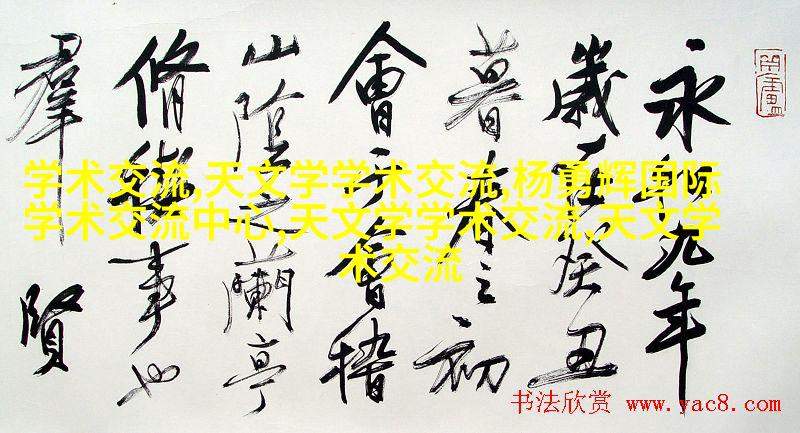 永和九年
歲在癸丑
暮春之初
會于會稽
山陰之蘭亭
脩禊事也
羣賢
学术交流,天文学学术交流,杨勇辉国际
学术交流中心,天文学学术交流,天文学
术交流
书法欣赏 www.yac8.com